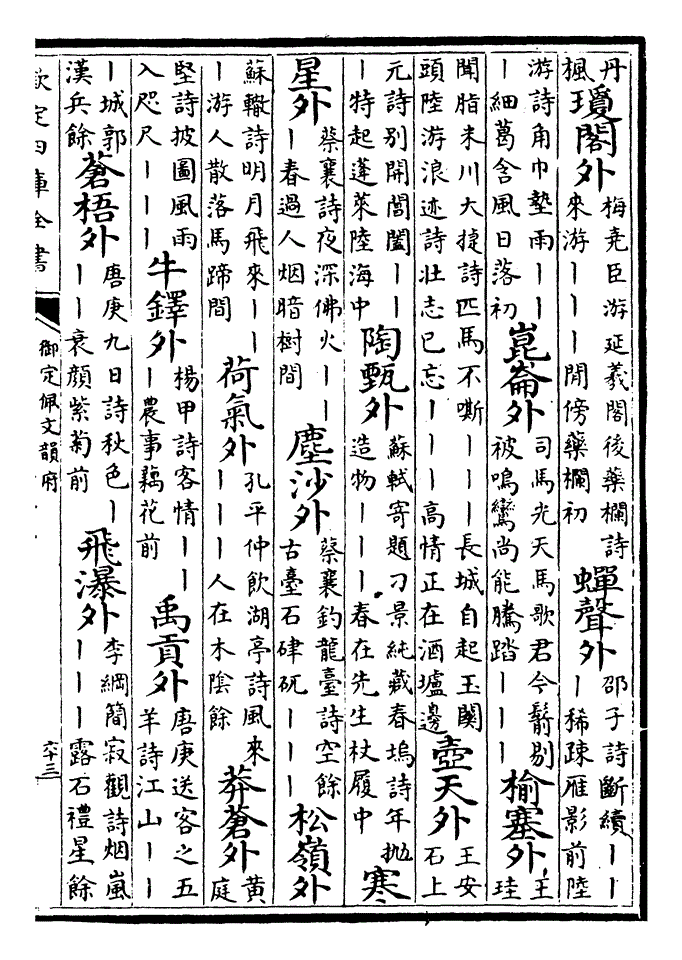 丹楓瓊閣外梅堯臣游延義閣後藥欄詩來游｜｜｜閒傍藥欄初蟬聲外邵子詩斷續｜｜｜稀疎雁影前陸
游詩角巾墊雨｜｜｜細葛含風日落初崑崙外司馬光天馬歌君今翦剔被鳴鸞尚能騰踏｜｜｜榆塞外王珪
聞脂米川大捷詩匹馬不嘶｜｜｜長城自起玉關頭陸游浪迹詩壯志已忘｜｜｜高情正在酒壚邊壺天外王安石上
元詩别開閶闔｜｜｜特起蓬萊陸海中陶甄外蘇軾寄題刁景純藏春塢詩年抛造物｜｜｜春在先生杖履中寒
星外蔡襄詩夜深佛火｜｜｜春過人烟暗樹間塵沙外蔡襄釣龍臺詩空餘古臺石硉矹｜｜｜松嶺外
蘇轍詩明月飛來｜｜｜游人散落馬蹄間荷氣外孔平仲飲湖亭詩風來｜｜｜人在木陰餘莽蒼外黄庭
堅詩披圖風雨入咫尺｜｜｜牛鐸外楊甲詩客情｜｜｜農事藕花前禹貢外唐庚送客之五羊詩江山｜｜
｜城郭漢兵餘蒼梧外唐庚九日詩秋色｜｜｜衰顔紫菊前飛瀑外李綱簡寂觀詩烟嵐｜｜｜露石禮星餘
欽定四庫全書
御定佩文韻府
六十三